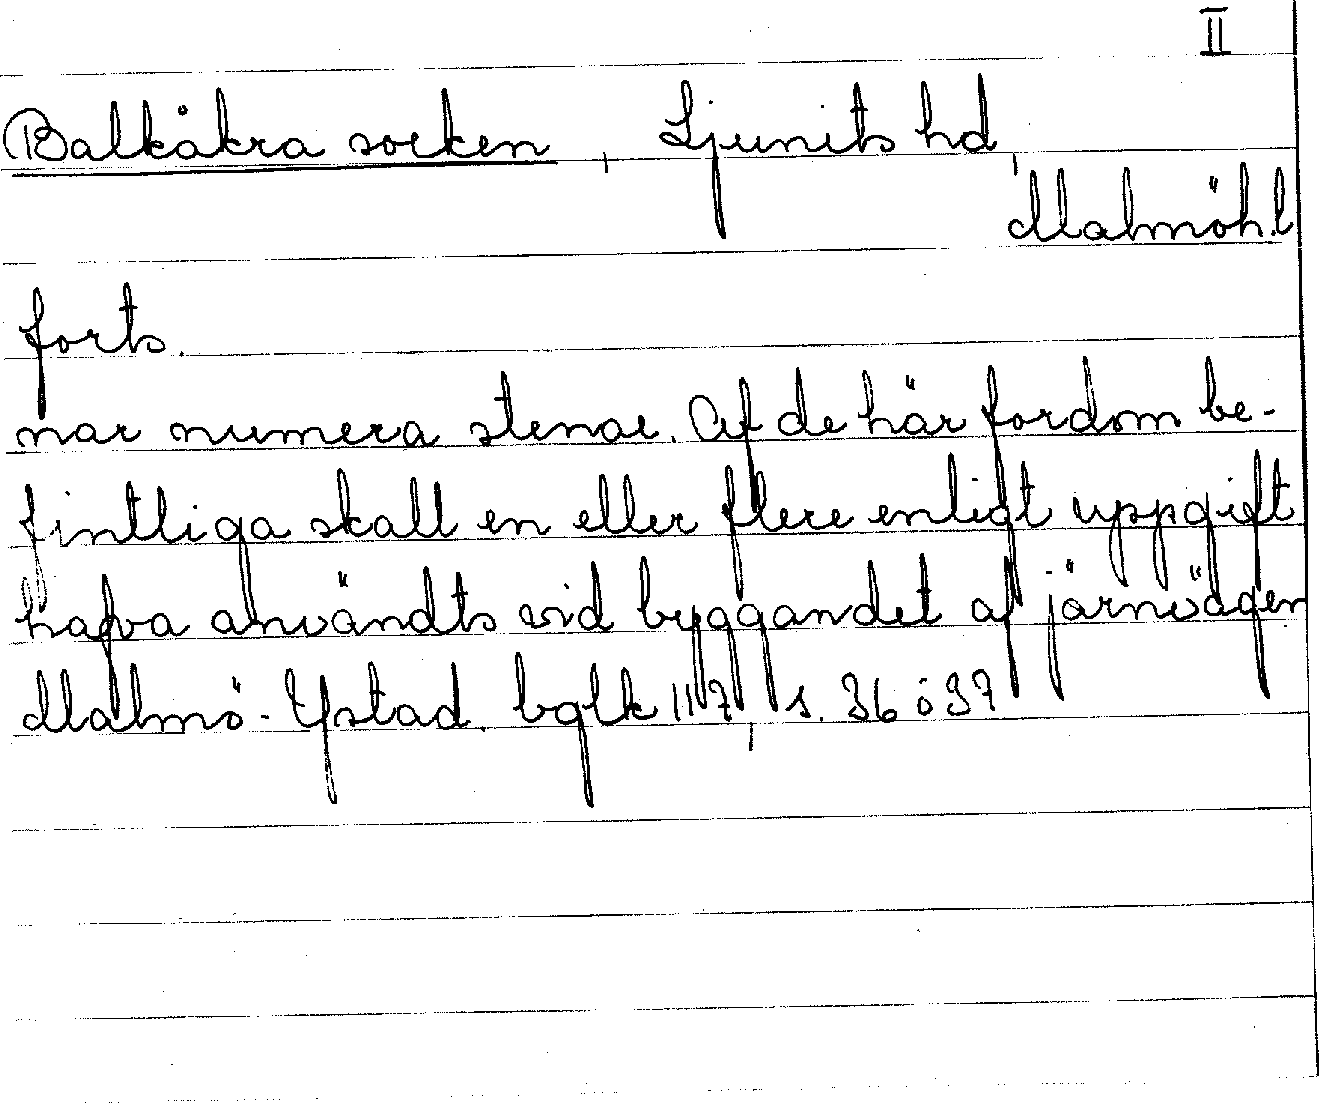 II
Balkåkra socken, Ljunits hd,
Malmöh.l
forts.
nar numera stenar. Af de här fordom be-
fintliga skall en eller flere enligt uppgift
hafva användts vid byggandet af järnvägen
Malmö-Ystad. bglk 117, s. 36 o 37